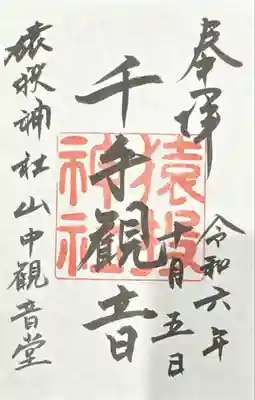 奉拝
令和六年
十月五日
千手観音
猿投神社
猿投神社山中観音堂